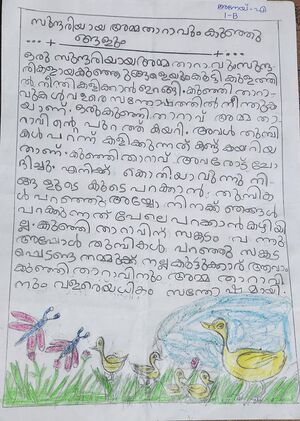 അനേയ്-എ
1-B
സുന്ദരിയായ അമ്മതാറാവും കുഞ്ഞു
ങ്ങളും
ഒരു സുന്ദരിയായ അമ്മ താറാവും സുന്ദ
രികളായ കുഞ്ഞുങ്ങളെയും കൂട്ടി കുളത്തി
ൽ നീന്തി കളിക്കാൻ ഇറങ്ങി. കുഞ്ഞി താറാ
വുകൾ വളരെ സന്തോഷത്തിൽ നീന്തുക
യാണ്. ഒരു കുഞ്ഞിതാറാവ് അമ്മ താ
റാവിന്റെ പുറത്ത് കയറി. അവൾ തുമ്പി
കൾ പറന്ന് കളിക്കുന്നത് കണ്ട് കയറിയ
താണ്. കുഞ്ഞിതാറാവ് അവരോട് ചോ
ദിച്ചു. എനിക്ക് കൊതിയാവുന്നു നി
ങ്ങളുടെ കൂടെ പറക്കാൻ. തുമ്പിക
ൾ പറഞ്ഞു അയ്യോ നിനക്ക് ഞങ്ങൾ
പറക്കുന്നത് പേലെ പറക്കാൻ കഴിയി
ല്ല. കുഞ്ഞി താറാവിന് സങ്കടം വന്നു
അപ്പോൾ തുമ്പികൾ പറഞ്ഞു സങ്കട
പ്പെടണ്ട നമ്മുക്ക് നല്ല കൂട്ടുക്കാർ ആവാം
കുഞ്ഞി താറാവിനും അമ്മ താറാവി
നും വളരെയധികം സന്തോഷമായി.